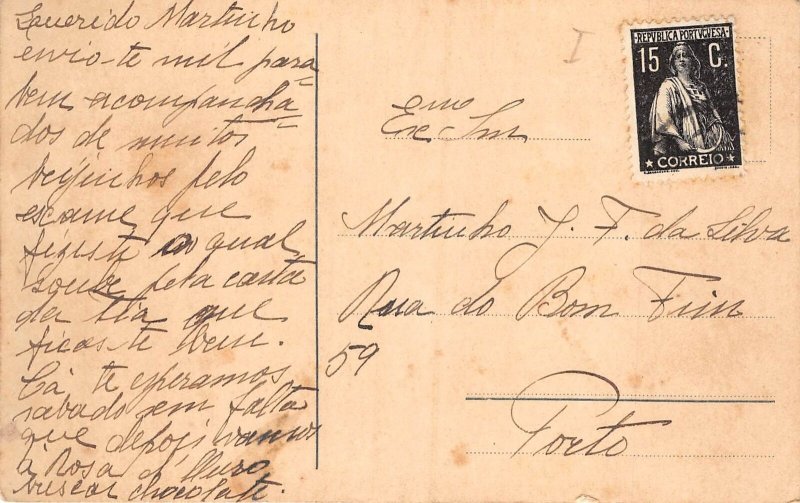 Querido Martinho
envio-te mil para-
bem acompanha-
dos de muitos
beijinhos pelo
escame que
fizeste o qual
soube pela carta
da tia que
ficas-te bem.
Cá te esperamos
sabado sem falta
que depois vamos
á Rosa d'Ouro
buscar chocolate.
I
REPUBLICA PORTUGUESA
15 C.
CORREIO
Exmo Snr
Martinho J. F. da Silva
Rua do Bom Fim
59
Porto